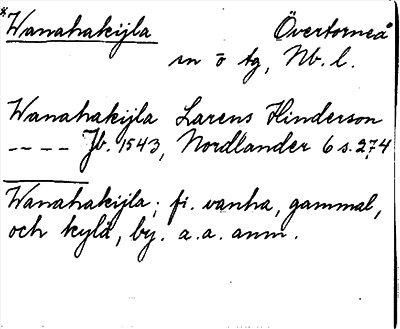 *Wanahakijla Övertorneå
sn ö tg, Nb. l.
Wanahakijla Larens Hinderson
---- Jb. 1543, Nordlander 6 s. 274
Wanahakijla; fi. vanha, gammal,
och kylä, by. a.a. anm.